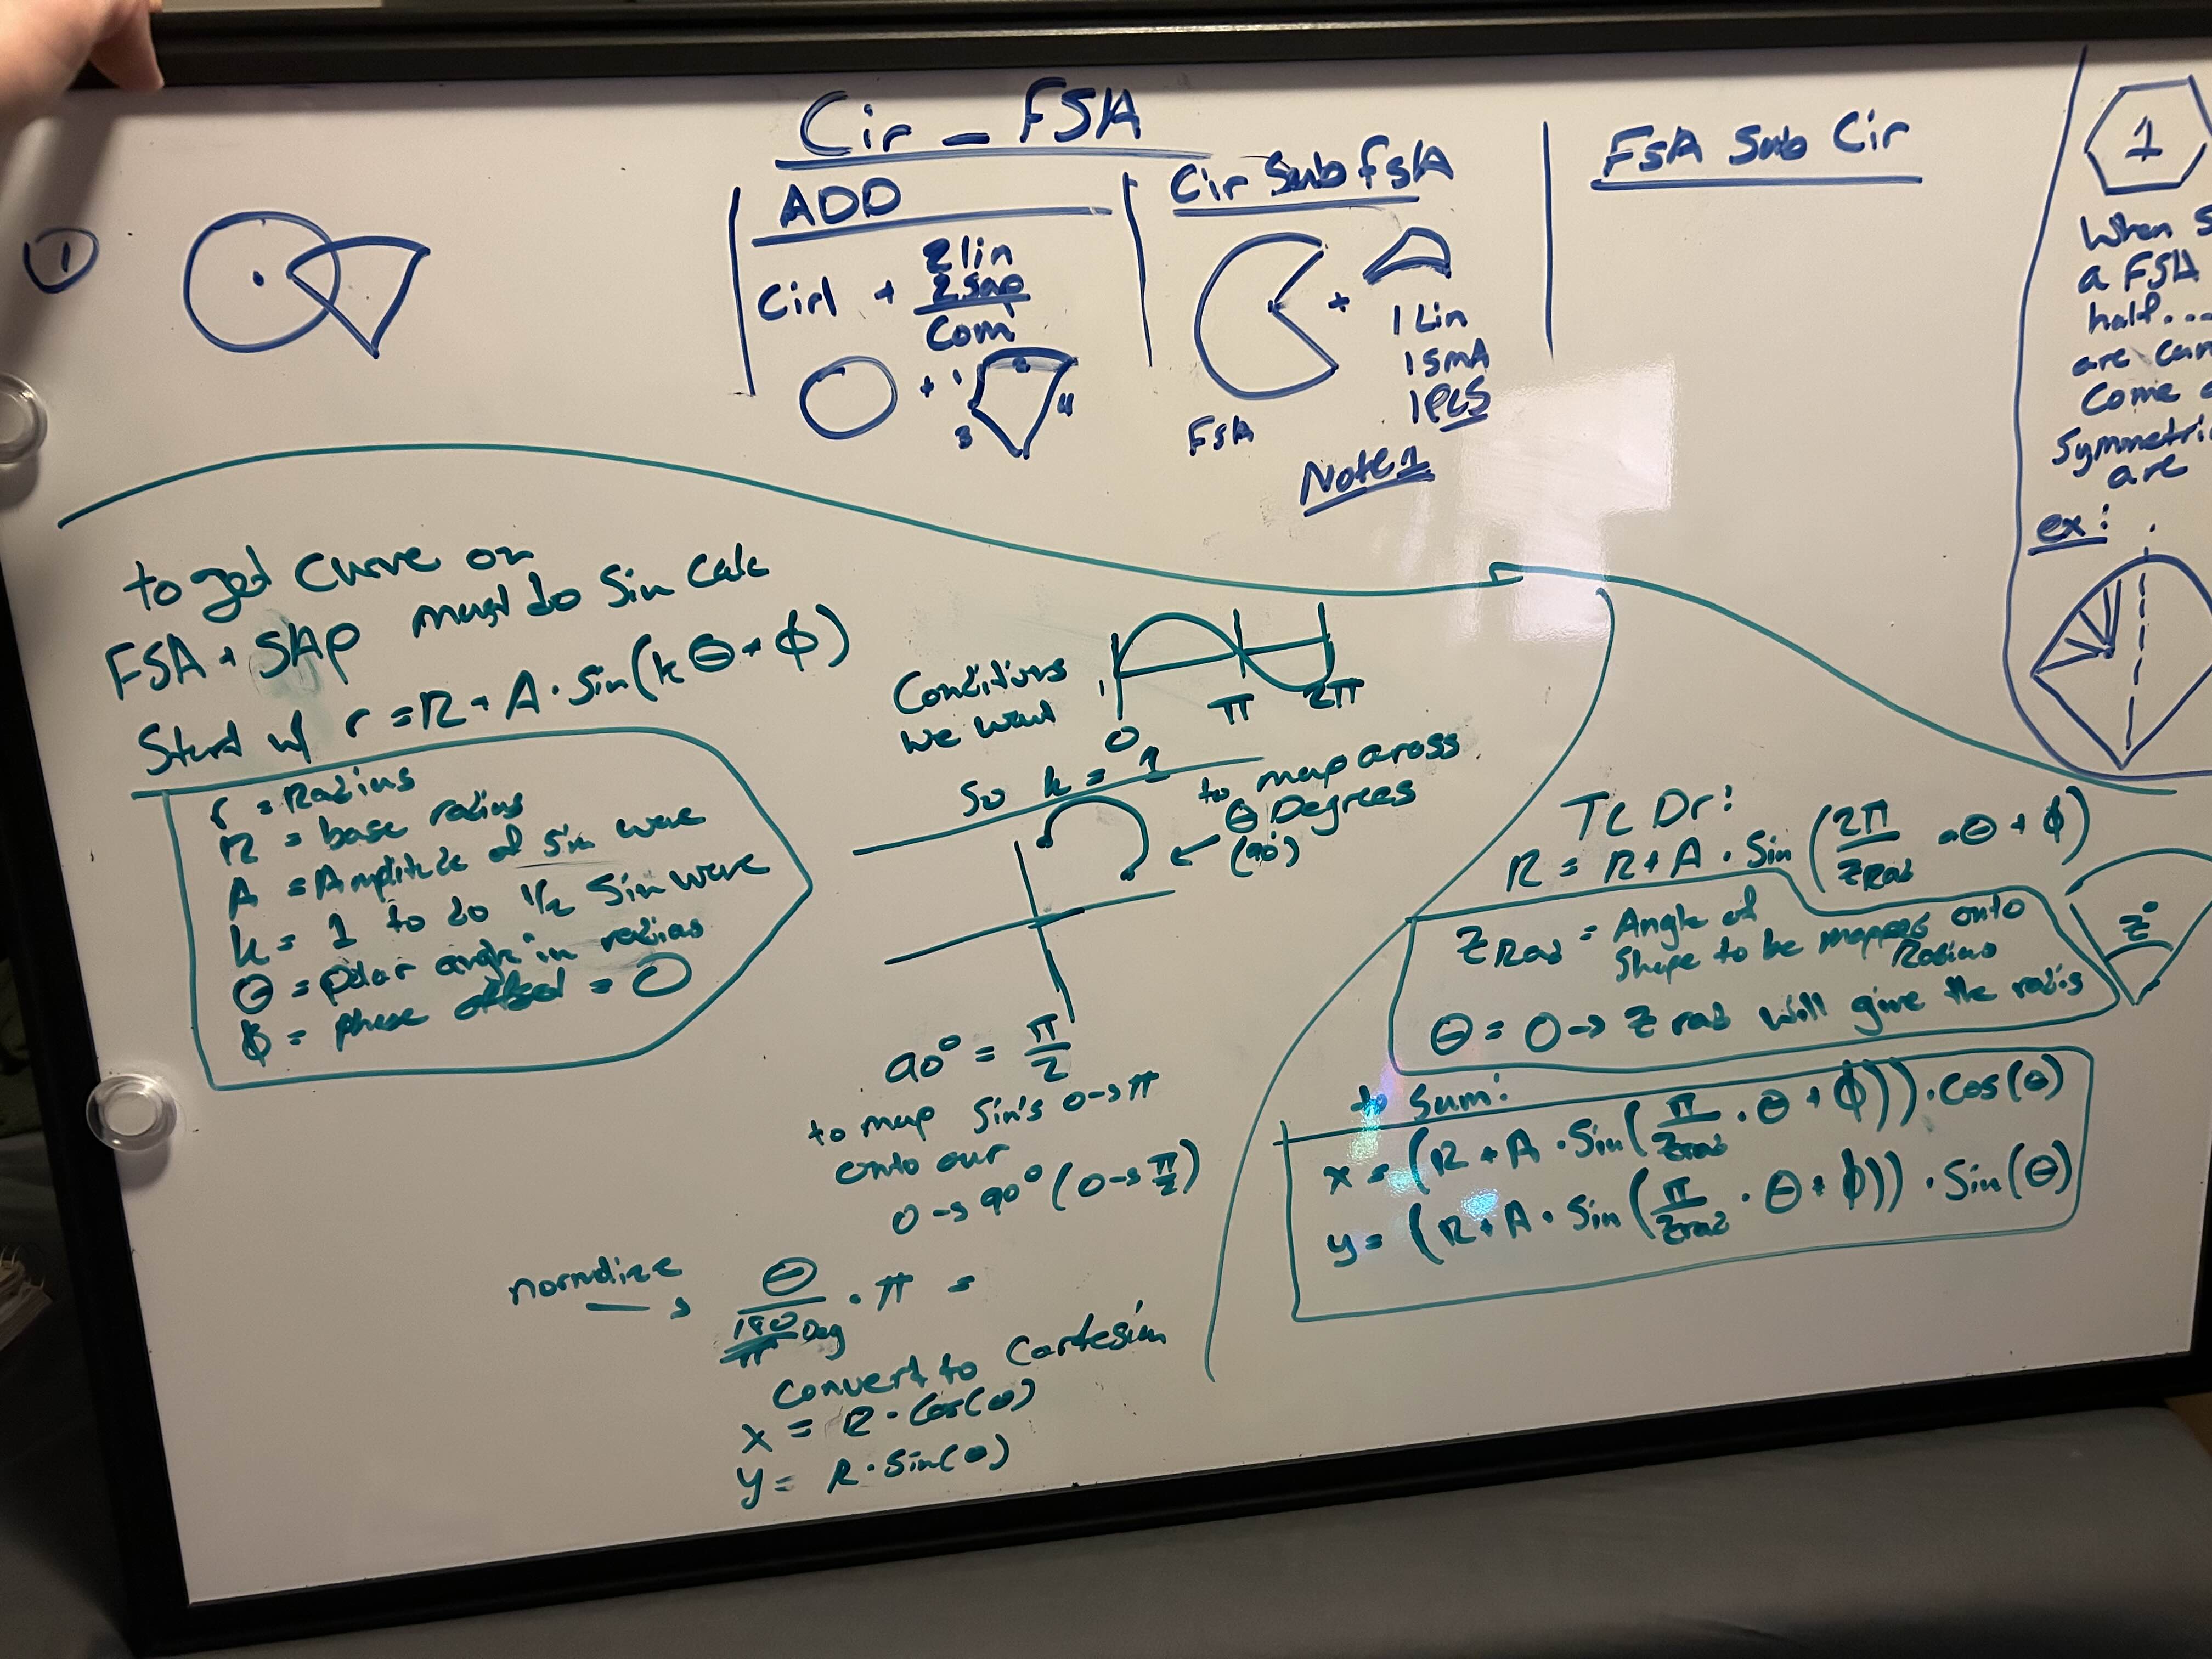 Cir - FSA
1
ADD
Cir1 + 2 lin
2 SAP
Com
+ 1
2
3
4
Cir Sub FSA
+
1 Lin
1 SMA
1 PCS
FSA
Note 1
FSA Sub Cir
1
When S
a FSA
half...
are can
Come
Symmetri
are
ex:
to get curve on
FSA + SAP must do Sin Calc
Start w/ r = R + A · Sin(kθ + ϕ)
r = Radius
R = base radius
A = Amplitude of sin wave
k = 1 to do 1/2 Sin wave
θ = polar angle in radias
ϕ = phase offset = 0
Conditions
we want
1
0
π
2π
So k = 1
to map across
θ Degrees
(90°)
90° = π/2
to map Sin's 0→π
onto our
0→90° (0→π/2)
normalize
→ θ/(180/π Deg) · π =
Convert to Cartesian
x = R · Cos(θ)
y = R · Sin(θ)
TL Dr:
R = R + A · Sin(2π/ZRad · θ + ϕ)
ZRad = Angle of
Shape to be mapped onto
Radius
θ = 0→Z rad will give the radis
Z°
to sum:
x = (R + A · Sin(π/Zrad · θ + ϕ)) · Cos(θ)
y = (R + A · Sin(π/Zrad · θ + ϕ)) · Sin(θ)